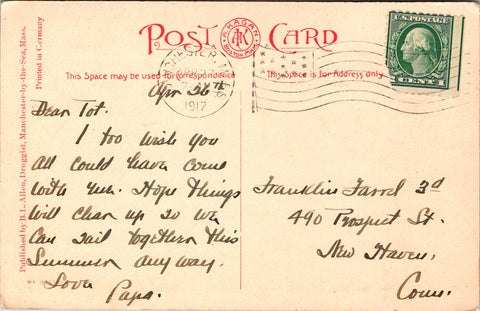 POST CARD
A. KAGAN
ATK
BOSTON MASS.
U.S. POSTAGE
1 CENT 1
This Space may be used for Correspondence
This Space is for Address only
Printed in Germany
Published by B. L. Allen, Druggist, Manchester-by-the-Sea, Mass.
1917
Apr 26th
Dear Tot.
I too wish you
all could have come
with Gus. Hope Things
Will clear up so we
Can sail together this
Summer any way.
Love
Papa.
Franklin Farrel 3d
490 Prospect St.
New Haven,
Conn.